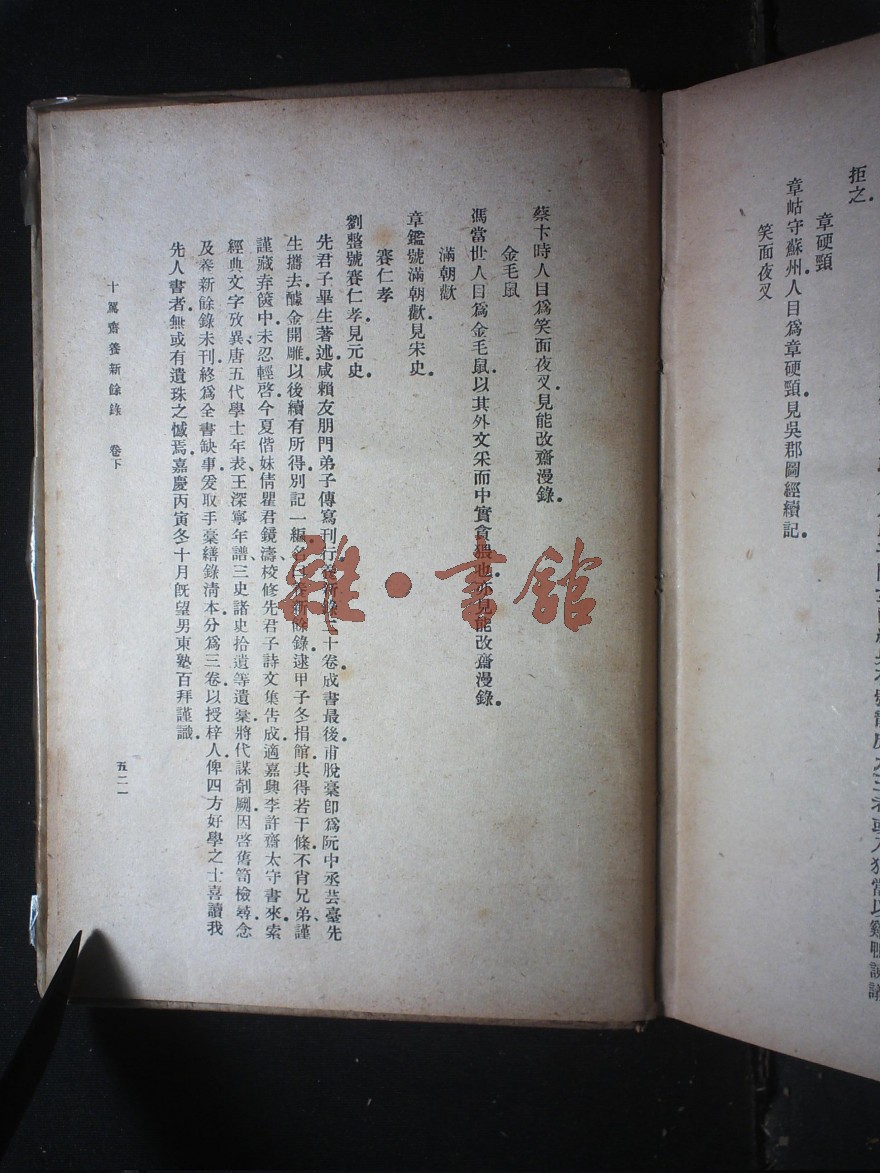 拒之。
章硬頸
章岵守蘇州。人目爲章硬頸。見吳郡圖經續記。
笑面夜叉
蔡卞時人目爲笑面夜叉。見能改齋漫錄。
金毛鼠
馮當世人目爲金毛鼠。以其外文采而中實貪猥也。亦見能改齋漫錄。
滿朝歡
章鑑號滿朝歡。見宋史。
賽仁孝
劉整號賽仁孝。見元史。
先君子畢生著述。咸賴友朋門弟子傳寫刊行。養新錄二十卷。成書最後。甫脫稾卽爲阮中丞芸臺先
生攜去。醵金開雕。以後續有所得。別記一編。名曰養新餘錄。逮甲子冬捐館。共得若干條。不肖兄弟、謹
謹藏弆篋中。未忍輕啓。今夏偕妹倩瞿君鏡濤、校修先君子詩文集告成。適嘉興李許齋太守書來。索
經典文字攷異、唐五代學士年表、王深寧年譜、三史諸史拾遺等遺稾。將代謀剞劂。因啓舊笥檢尋。念
及養新餘錄未刊。終爲全書缺事。爰取手稾繕錄淸本。分爲三卷。以授梓人。俾四方好學之士喜讀我
先人書者。無或有遺珠之憾焉。嘉慶丙寅冬十月旣望男東塾百拜謹識。
十駕齋養新餘錄 卷下
五二一
雜·書館